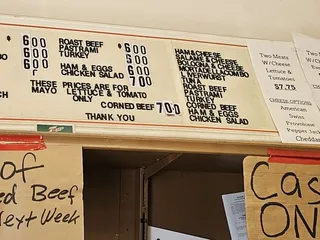 600
600
600
ROAST BEEF 600
PASTRAMI 600
TURKEY 600
HAM & EGGS 600
CHICKEN SALAD 700
THESE PRICES ARE FOR
MAYO LETTUCE & TOMATO
ONLY
CORNED BEEF 700
THANK YOU
HAM&CHEESE
SALAME & CHEESE
BOLOGNA & CHEESE
COPPA & CHEESE
MORTADELLA
COMBO
LIVERWURST
TUNA
ROAST BEEF
PASTRAMI
TURKEY
CORNED BEEF
HAM & EGGS
CHICKEN SALAD
Two Meats
W/Cheese
Lettuce &
Tomatoes
$7.75
CHEESE OPTIONS
American
Swiss
Provolone
Pepper Jack
Cheddar
of
ed Beef
Next Week
Cas
ON